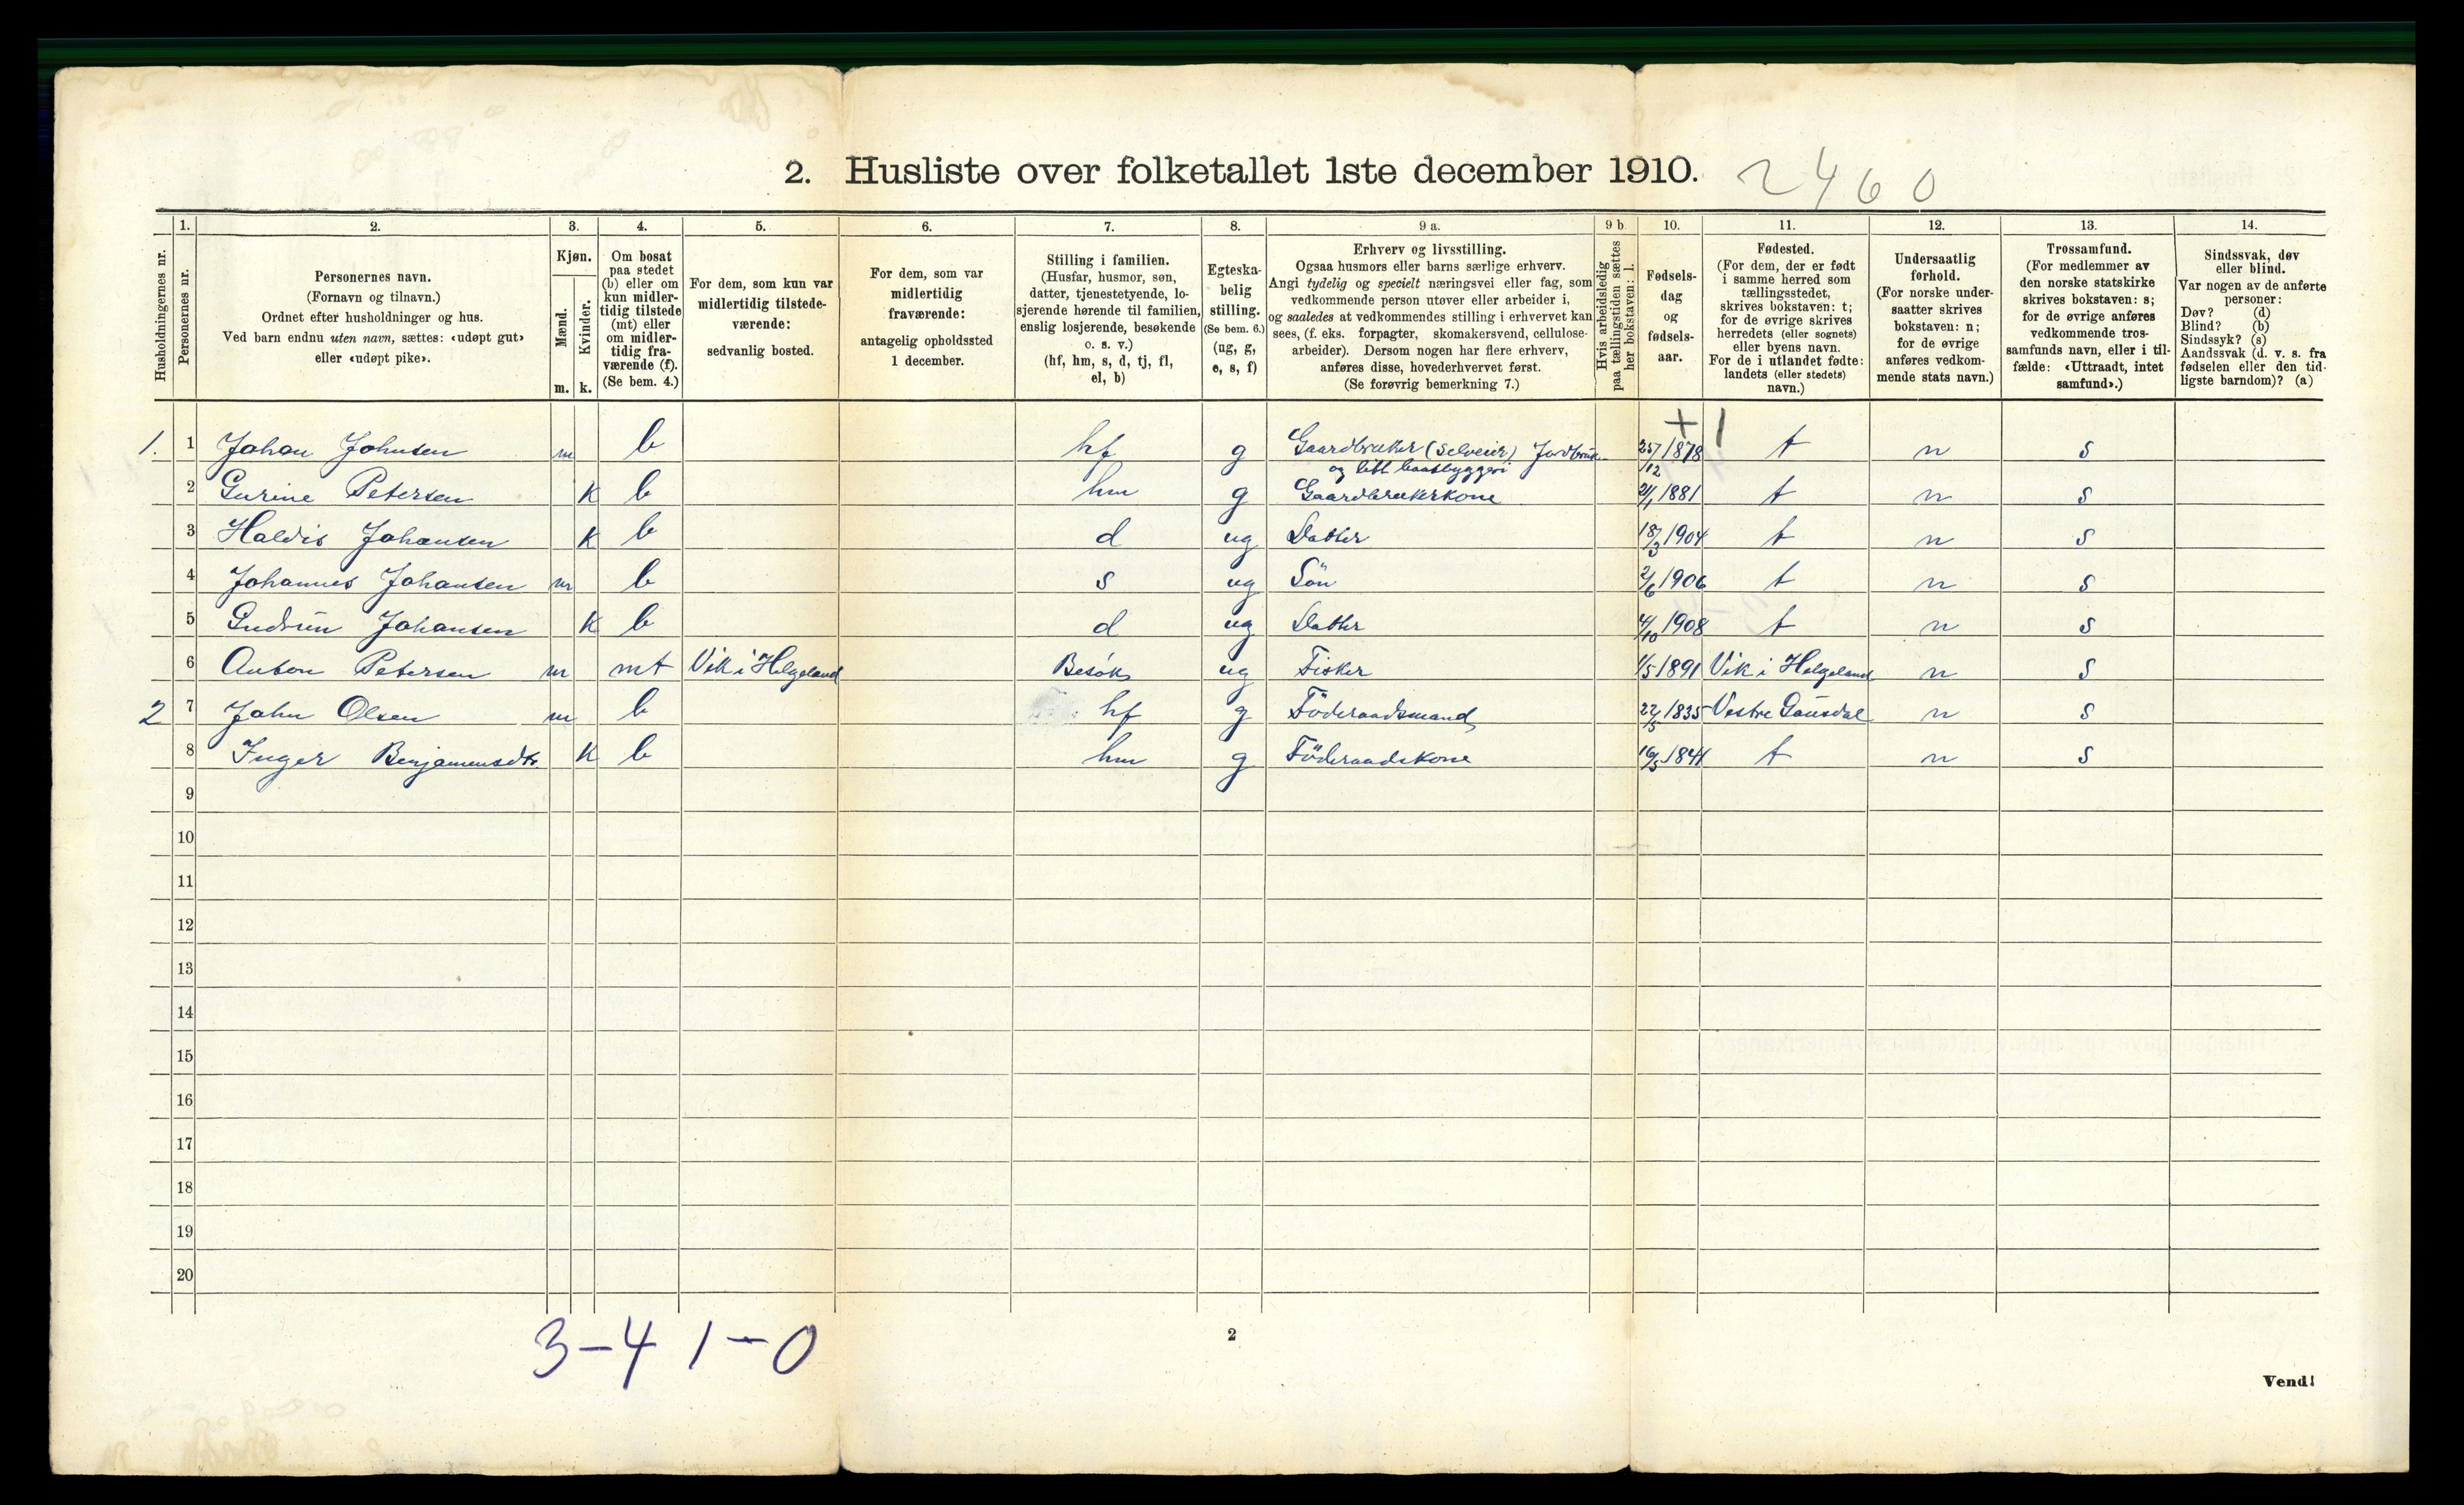 2. Husliste over folketallet 1ste december 1910. 2460
Husholdningernes nr.
1. Personernes nr.
2. Personernes navn.
(Fornavn og tilnavn.)
Ordnet efter husholdninger og hus.
Ved barn endnu uten navn, sættes: «udøpt gut»
eller «udøpt pike».
3. Kjøn.
Mænd. m.
Kvinder. k.
4. Om bosat
paa stedet
(b) eller om
kun midler-
tidig tilstede
(mt) eller
om midler-
tidig fra-
værende (f).
(Se bem. 4.)
5. For dem, som kun var
midlertidig tilstede-
værende:
sedvanlig bosted.
6. For dem, som var
midlertidig
fraværende:
antagelig opholdssted
1 december.
7. Stilling i familien.
(Husfar, husmor, søn,
datter, tjenestetyende, lo-
sjerende hørende til familien,
enslig losjerende, besøkende
o. s. v.)
(hf, hm, s, d, tj, fl,
el, b)
8. Egteska-
belig
stilling.
(Se bem. 6.)
(ug, g,
e, s, f)
9 a. Erhverv og livsstilling.
Ogsaa husmors eller barns særlige erhverv.
Angi tydelig og specielt næringsvei eller fag, som
vedkommende person utøver eller arbeider i,
og saaledes at vedkommendes stilling i erhvervet kan
sees, (f. eks. forpagter, skomakersvend, cellulose-
arbeider). Dersom nogen har flere erhverv,
anføres disse, hovederhvervet først.
(Se forøvrig bemerkning 7.)
9 b. Hvis arbeidsledig
paa tællingstiden sættes
her bokstaven: l.
10. Fødsels-
dag
og
fødsels-
aar.
11. Fødested.
(For dem, der er født
i samme herred som
tællingsstedet,
skrives bokstaven: t;
for de øvrige skrives
herredets (eller sognets)
eller byens navn.
For de i utlandet fødte:
landets (eller stedets)
navn.)
12. Undersaatlig
forhold.
(For norske under-
saatter skrives
bokstaven: n;
for de øvrige
anføres vedkom-
mende stats navn.)
13. Trossamfund.
(For medlemmer av
den norske statskirke
skrives bokstaven: s;
for de øvrige anføres
vedkommende tros-
samfunds navn, eller i til-
fælde: «Uttraadt, intet
samfund».)
14. Sindssvak, døv
eller blind.
Var nogen av de anførte
personer:
Døv? (d)
Blind? (b)
Sindssyk? (s)
Aandssvak (d. v. s. fra
fødselen eller den tid-
ligste barndom)? (a)
+ 1
1. 1 Johan Johnsen m b hf g Gaardbruker (selveier) Jordbruk 25/12 1878 t n s
og litt baatbyggeri
2 Gurine Petersen K b hm g Gaardbrukerkone 21/1 1881 t n s
3 Haldis Johansen K b d ug Datter 18/3 1904 t n s
4 Johannes Johansen m b s ug Sön 2/6 1906 t n s
5 Gudrun Johansen K b d ug Datter 4/10 1908 t n s
6 Anton Petersen m mt Vik i Helgeland Besøk ug Fisker 1/5 1891 Vik i Helgeland n s
2 7 John Olsen m b hf g Föderaadsmand 22/5 1835 Vestre Gausdal n s
8 Inger Benjamensdtr. K b hm g Föderaadskone 16/5 1841 t n s
9
10
11
12
13
14
15
16
17
18
19
20
3-4 1-0
2
Vend!